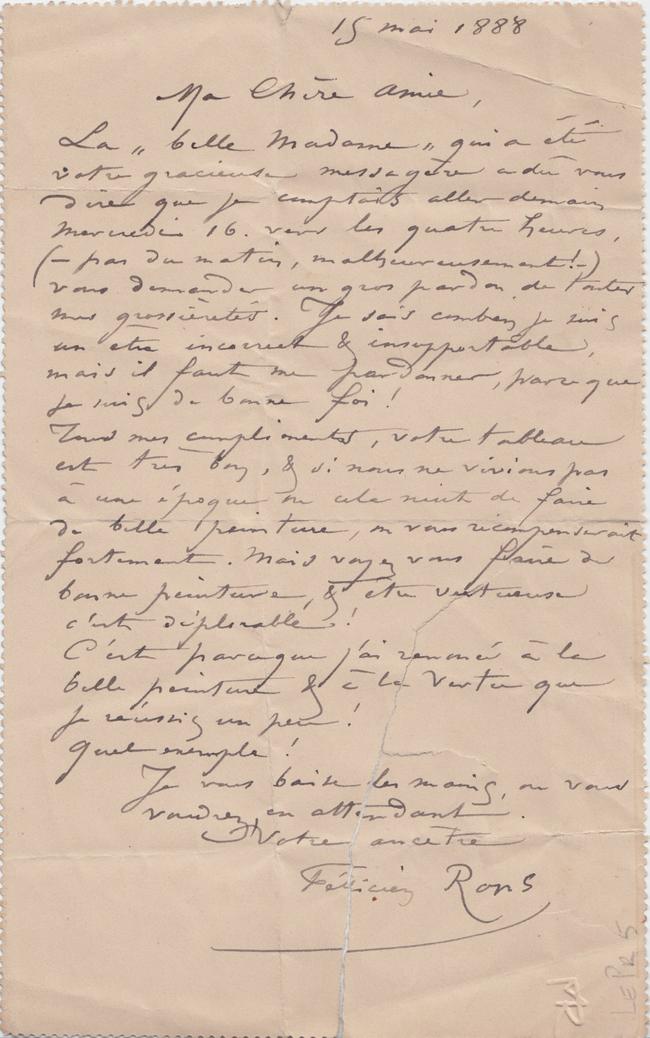 15 mai 1888
Ma Chère Amie,
La „ belle Madame „ qui a été
votre gracieuse messagère a dû vous
dire que je comptais aller demain
mercredi 16. vers les quatre heures,
(– pas du matin, malheureusement! –)
vous demander un gros pardon de toutes
mes grossièretés. Je sais combien je suis
un être incorrect & insupportable,
mais il faut me pardonner, parce que
je suis de bonne foi !
Tous mes compliments, votre tableau
est très bon, & si nous ne vivions pas
à une époque où cela nuit de faire
de belle peinture, on vous récompenserait
fortement. Mais voyez vous faire de
bonne peinture, & être vertueuse
c'est déplorable !
C'est parceque j'ai renoncé à la
belle peinture & à la Vertu que
je réussis un peu !
Quel exemple !
Je vous baise les mains, où vous
voudrez, en attendant.
Votre ancêtre
Félicien Rops
LEPR 5